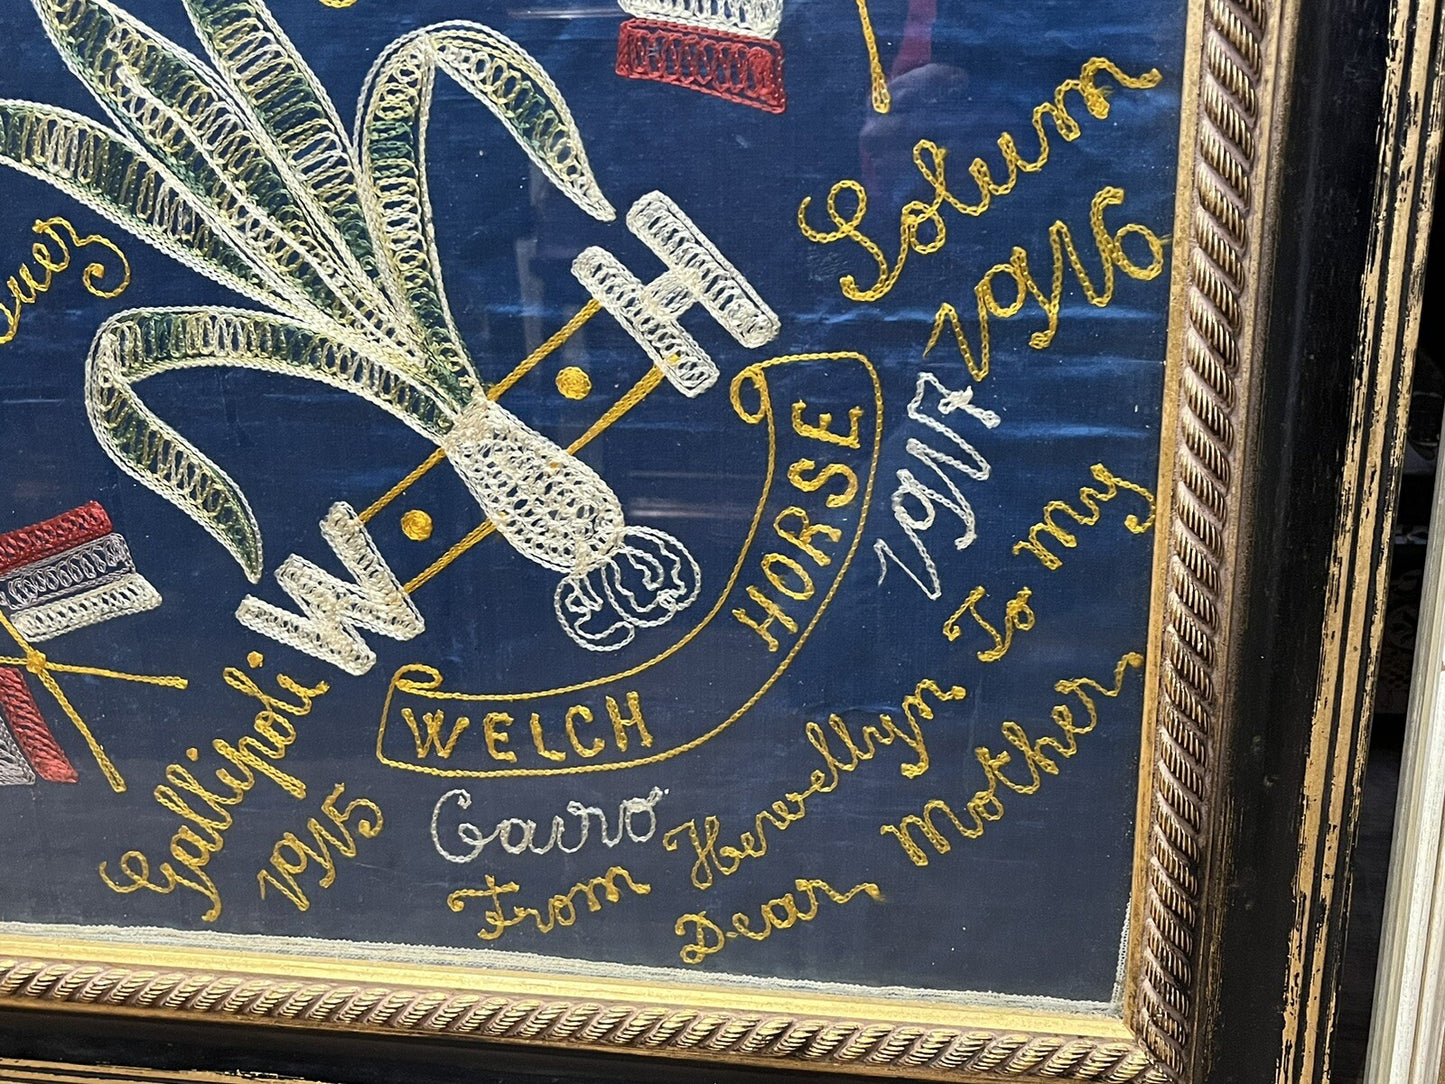 Solum
1916
W H
WELCH HORSE
1917
Gallipoli
1915
Cairo
From Hewellyn. To my
Dear Mother